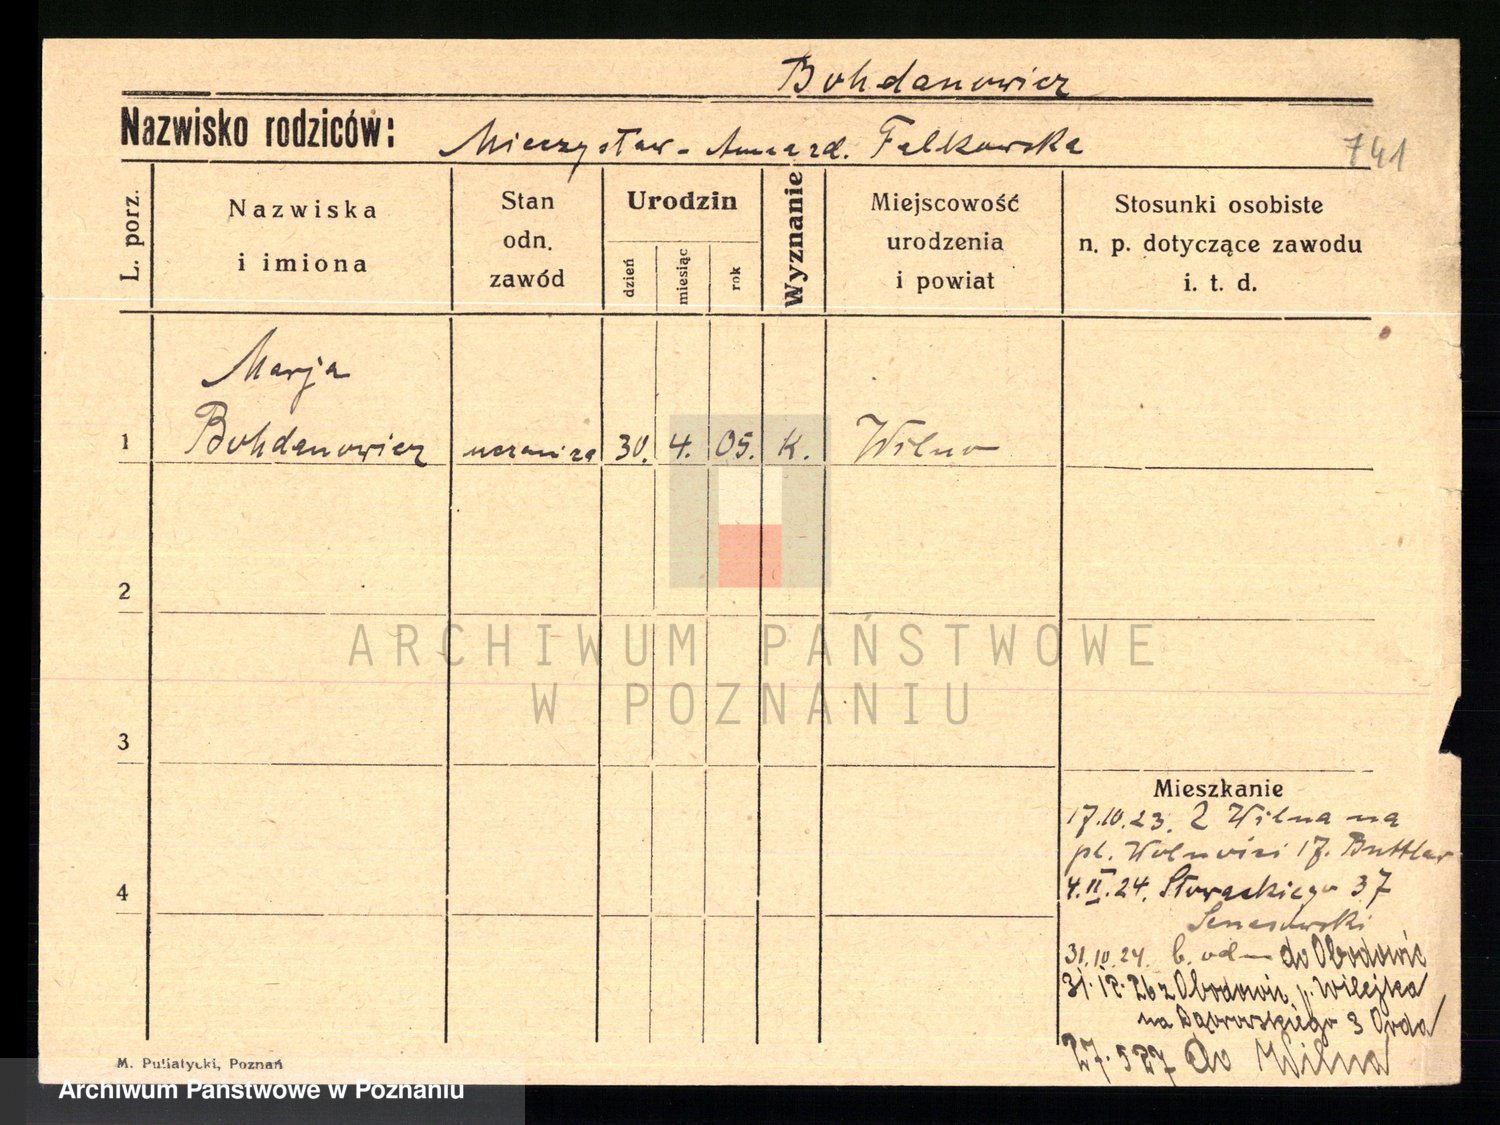 Bohdanowicz
Nazwisko rodziców: Mieczysław - Anna zd. Falkowska
741
L. porz.
Nazwiska
i imiona
Stan
odn.
zawód
Urodzin
dzień
miesiąc
rok
Wyznanie
Miejscowość
urodzenia
i powiat
Stosunki osobiste
n. p. dotyczące zawodu
i. t. d.
Marja
1 Bohdanowicz 30. 4. 05. K. Wilno
2
3
4
Mieszkanie
17.10.23. Z Wilna na
pl. Wolności 17. Buttler
4.II.24. Słowackiego 37
31.10.24. b. odm do Obodowic
31.12.26 z Obodowic p. Wilejka
na Dąbrowskiego 3 Orda
27.5 27 do Wilna
M. Puliatycki, Poznań
ARCHIWUM PAŃSTWOWE
W POZNANIU
Archiwum Państwowe w Poznaniu